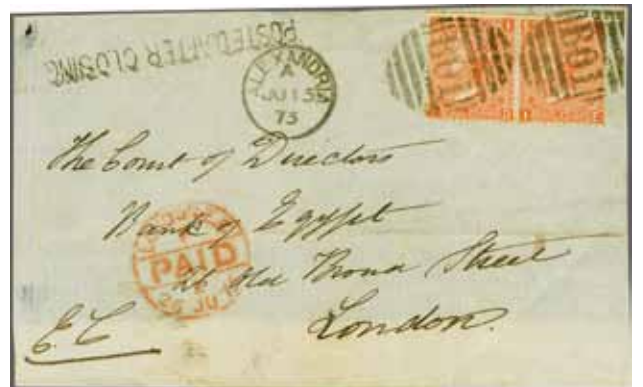 POSTED AFTER CLOSING
ALEXANDRIA
A
JU 15
73
B01 B01
The Court of Directors
Bank of Egypt
26 Old Broad Street
London.
E.C
PAID